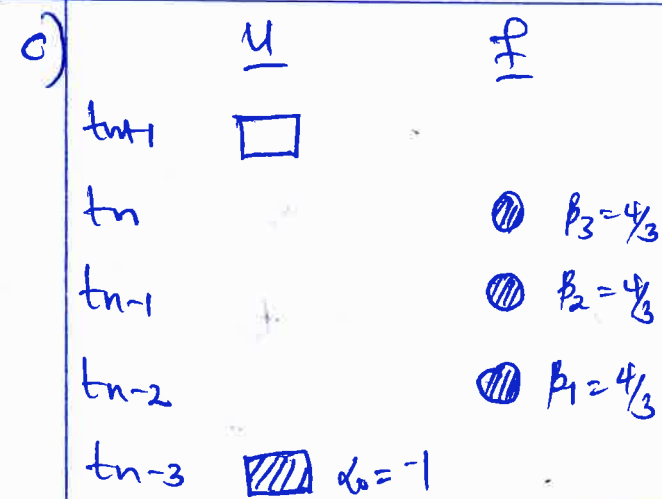 c) u f
tn+1
tn β3=4/3
tn-1 β2=4/3
tn-2 β1=4/3
tn-3 α0=-1